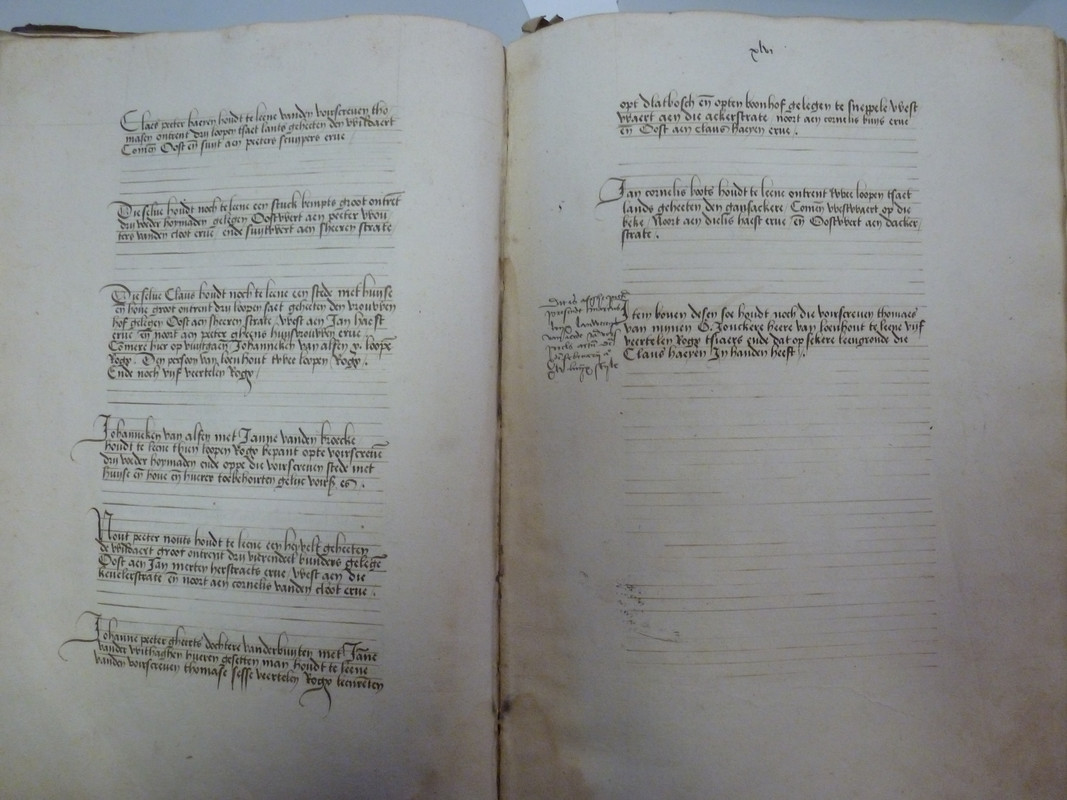 Claes peeter haeren houdt te leene vanden voirscreven tho
masen ontrent drij loopen tsaet lants geheeten den wildaert
Comen Oost en suut aen peeters scuypers erve
Dieselve houdt noch te leene een stuck bempts groot ontrent
drij voeder hoymaden gelegen Oostwert aen peeter wou
ters vanden cloot erve ende suytwert aen sheeren strate
Dieselve Claus houdt noch te leene een stede met huyse
en hove groot ontrent drij loopen saet geheeten den vrouwen
hof gelegen Oost aen sheeren strate West aen Jan haest
erve en noort aen peeter gheens huysvrouwen erve
Comen hier op vuytgaen Johanneken van alfen x loopen
Rogx. Den persoon van loenhout twee loopen Rogx.
Ende noch vijf veertelen Rogx
Johanneken van alfen met Janne vanden broecke
houdt te leene thien loopen Rogx bepant opte voirscreven
drij voeder hoymaden ende oppe die voirscreven stede met
huyse en hove en huerer toebehoirten gelijc voirs es.
Nout peeter nouts houdt te leene een heyvelt geheeten
de wildaert groot ontrent drij vierendeel bunders gelegen
Oost aen Jan merten herstraets erve West aen die
kevelerstrate en noort aen cornelis vanden cloot erve.
Johanne peeter gheerts dochtere vanderbunten met Janne
vander vrithaghen hueren gesetten man houdt te leene
vanden voirscreven thomase sesse veertelen Rogx
xlvi
opt dlatbosch en opten boonhof gelegen te sneppele West
waert aen die ackerstrate noort aen cornelis buys erve
en Oost aen claus haeren erve.
Jan cornelis boots houdt te leene ontrent twee loopen tsaet
lands geheeten den gansackere Comen Westwaert op die
beke Noort aen dielis haest erve en Oostwert aen dacker
strate.
Item boven desen soe houdt noch die voirscreven thomaes
van mijnen G. Jonckere heere van loenhout te leene vijf
veertelen Rogx tsiaers ende dat op sekere leengronde die
Claus haeren In handen heeft.